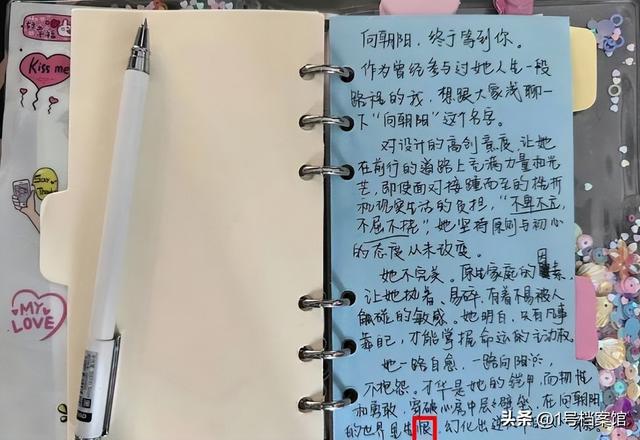 Kiss me
MY LOVE
向朝阳，终于等到你。
作为曾经参与过她人生一段
路程的我，想跟大家浅聊一
下“向朝阳”这个名字。
对设计的高创意度，让她
在前行的道路上充满力量和光
芒，即使面对接踵而至的挫折
和现实生活的负担，“不卑不亢，
不屈不挠”，她坚持原则与初心
的态度从未改变。
她不完美。原生家庭的因素，
让她执着、易碎、有着不易被人
触碰的敏感。她明白，只有凡事
靠己，才能掌握命运的主动权。
她一路自愈，一路向阳，
不抱怨。才华是她的铠甲，而韧性
和勇敢，穿破心房中层层壁垒，在向朝阳
的世界里生根，幻化出
头条 @1号档案馆